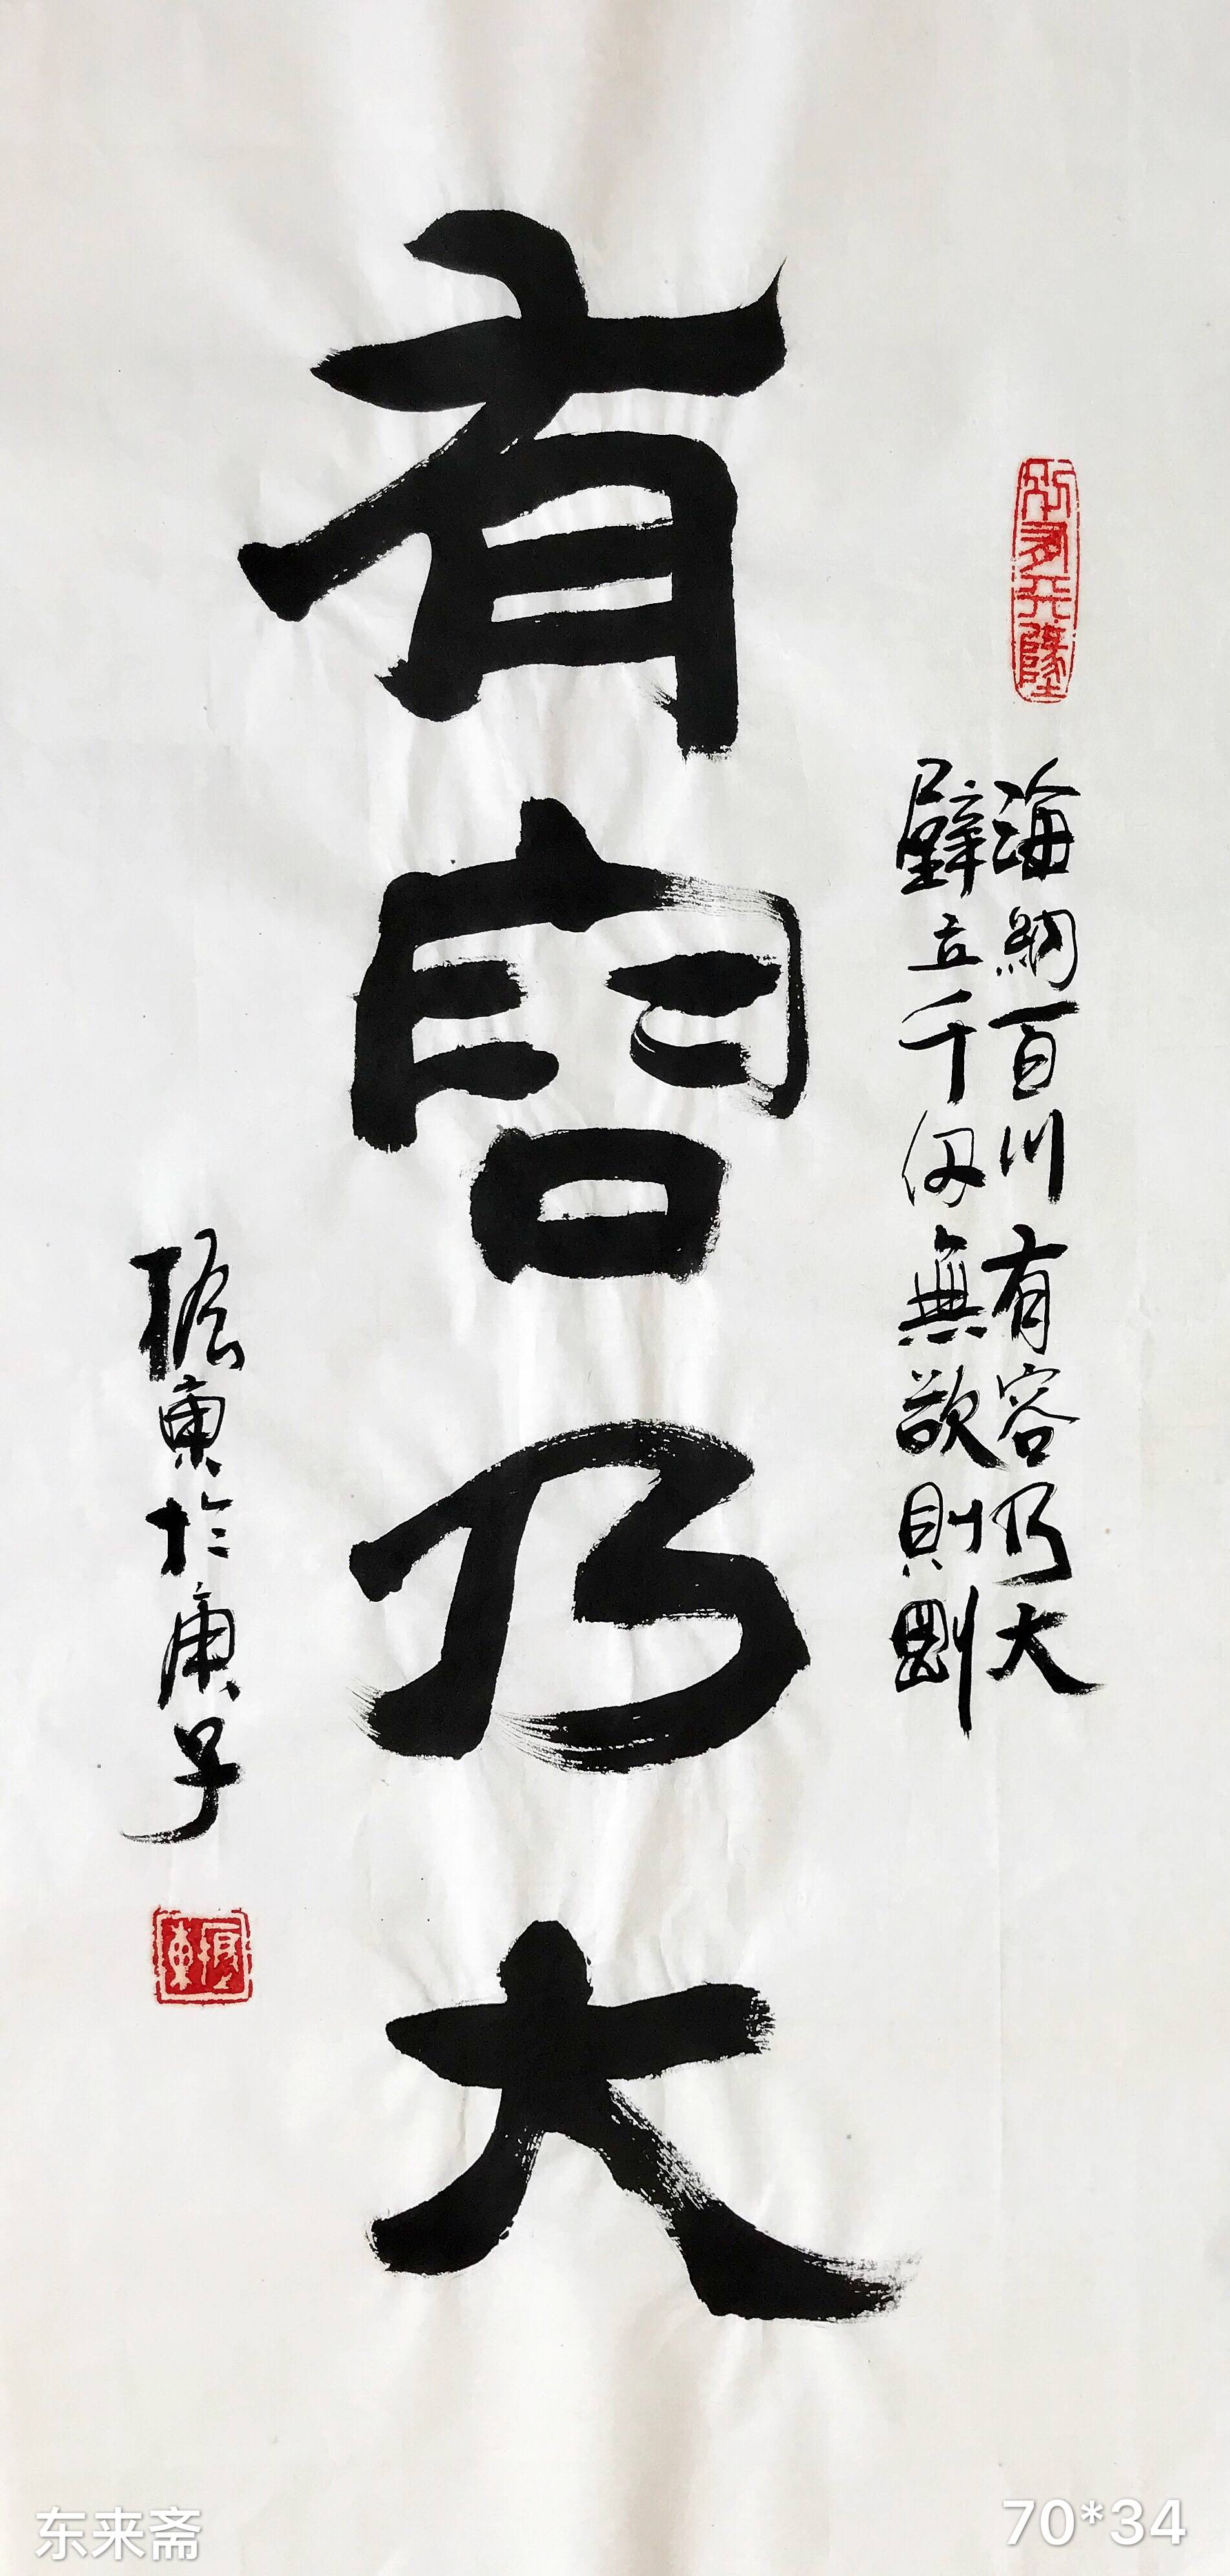 海納百川有容乃大
壁立千仞無欲則剛
有容乃大
振東於庚子
東来斋
70*34